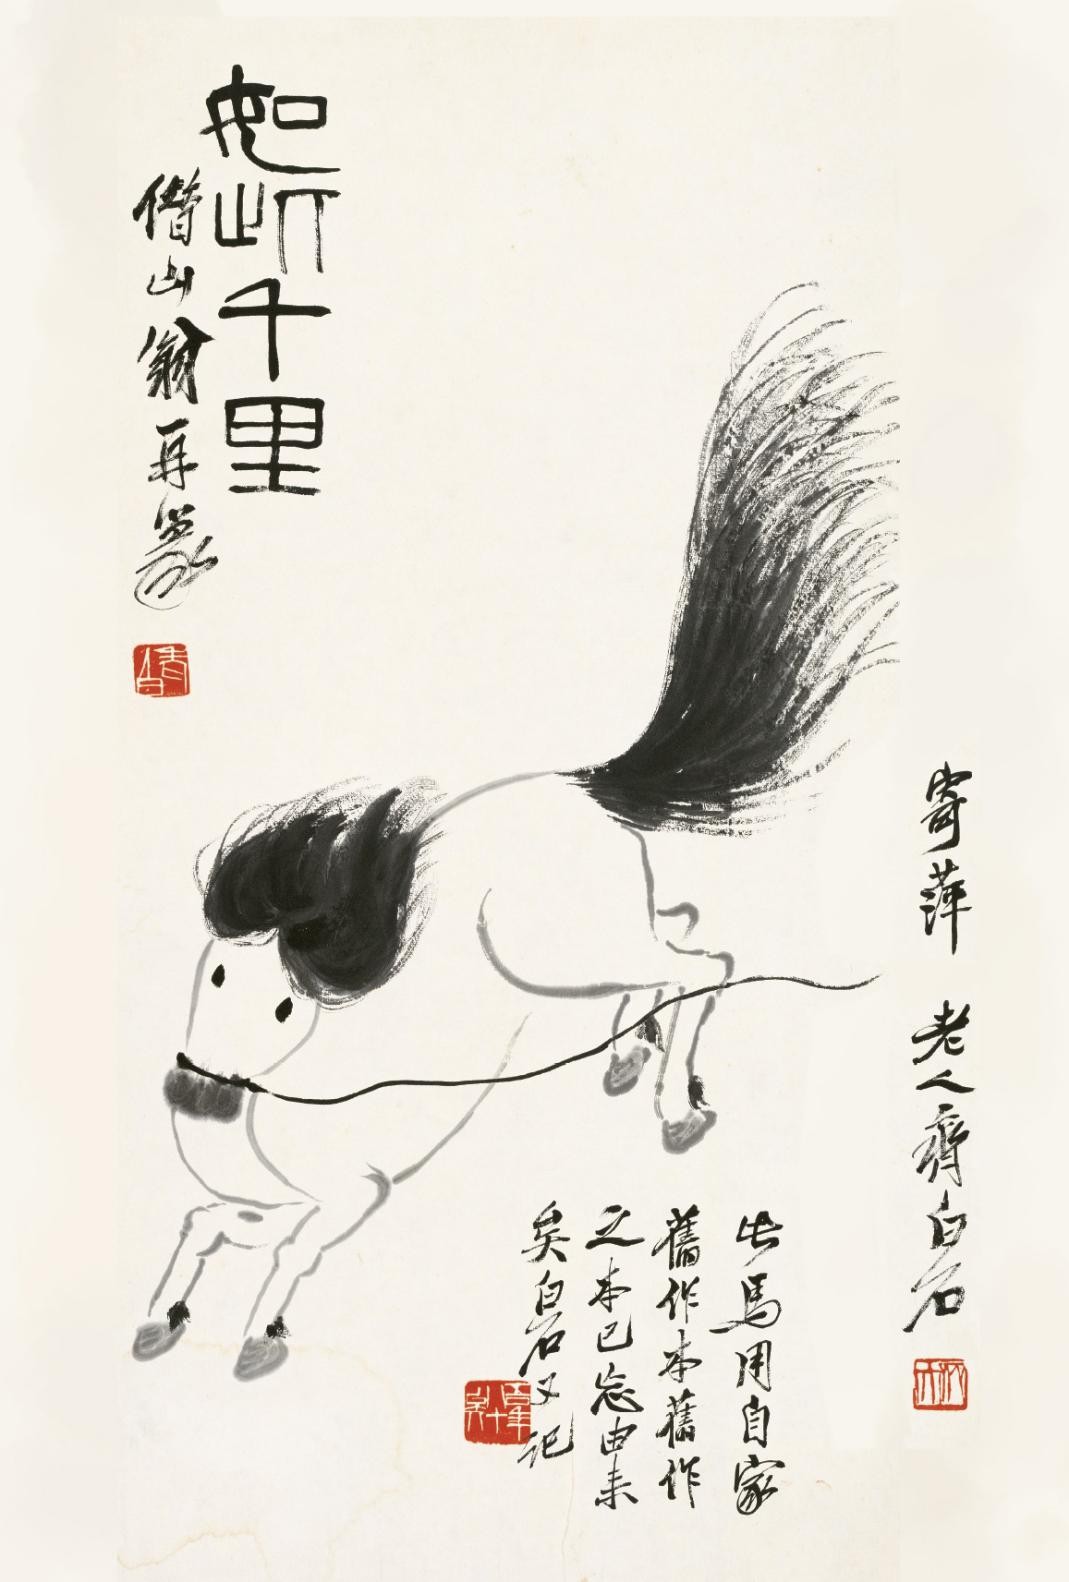 如此千里
借山翁再篆
寄萍老人齊白石
此馬用自家
舊作本舊作
之本已忘由来
矣白石又記
吾年八十矣